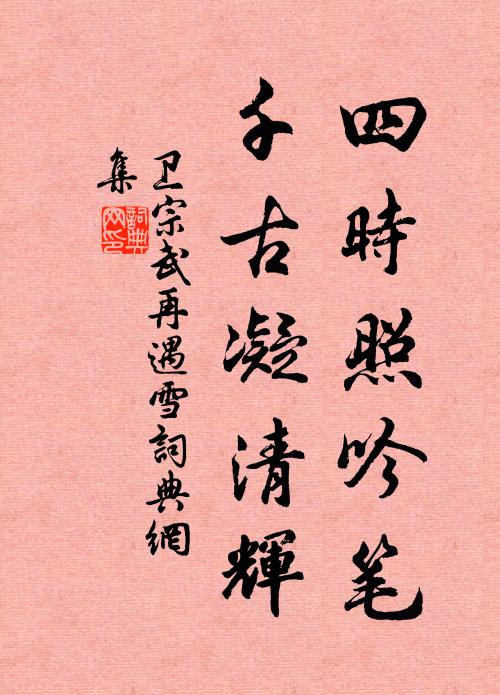 四時照吟笔
千古凝清輝
卫宗武再遇雪詞典網
集
詞典
网印